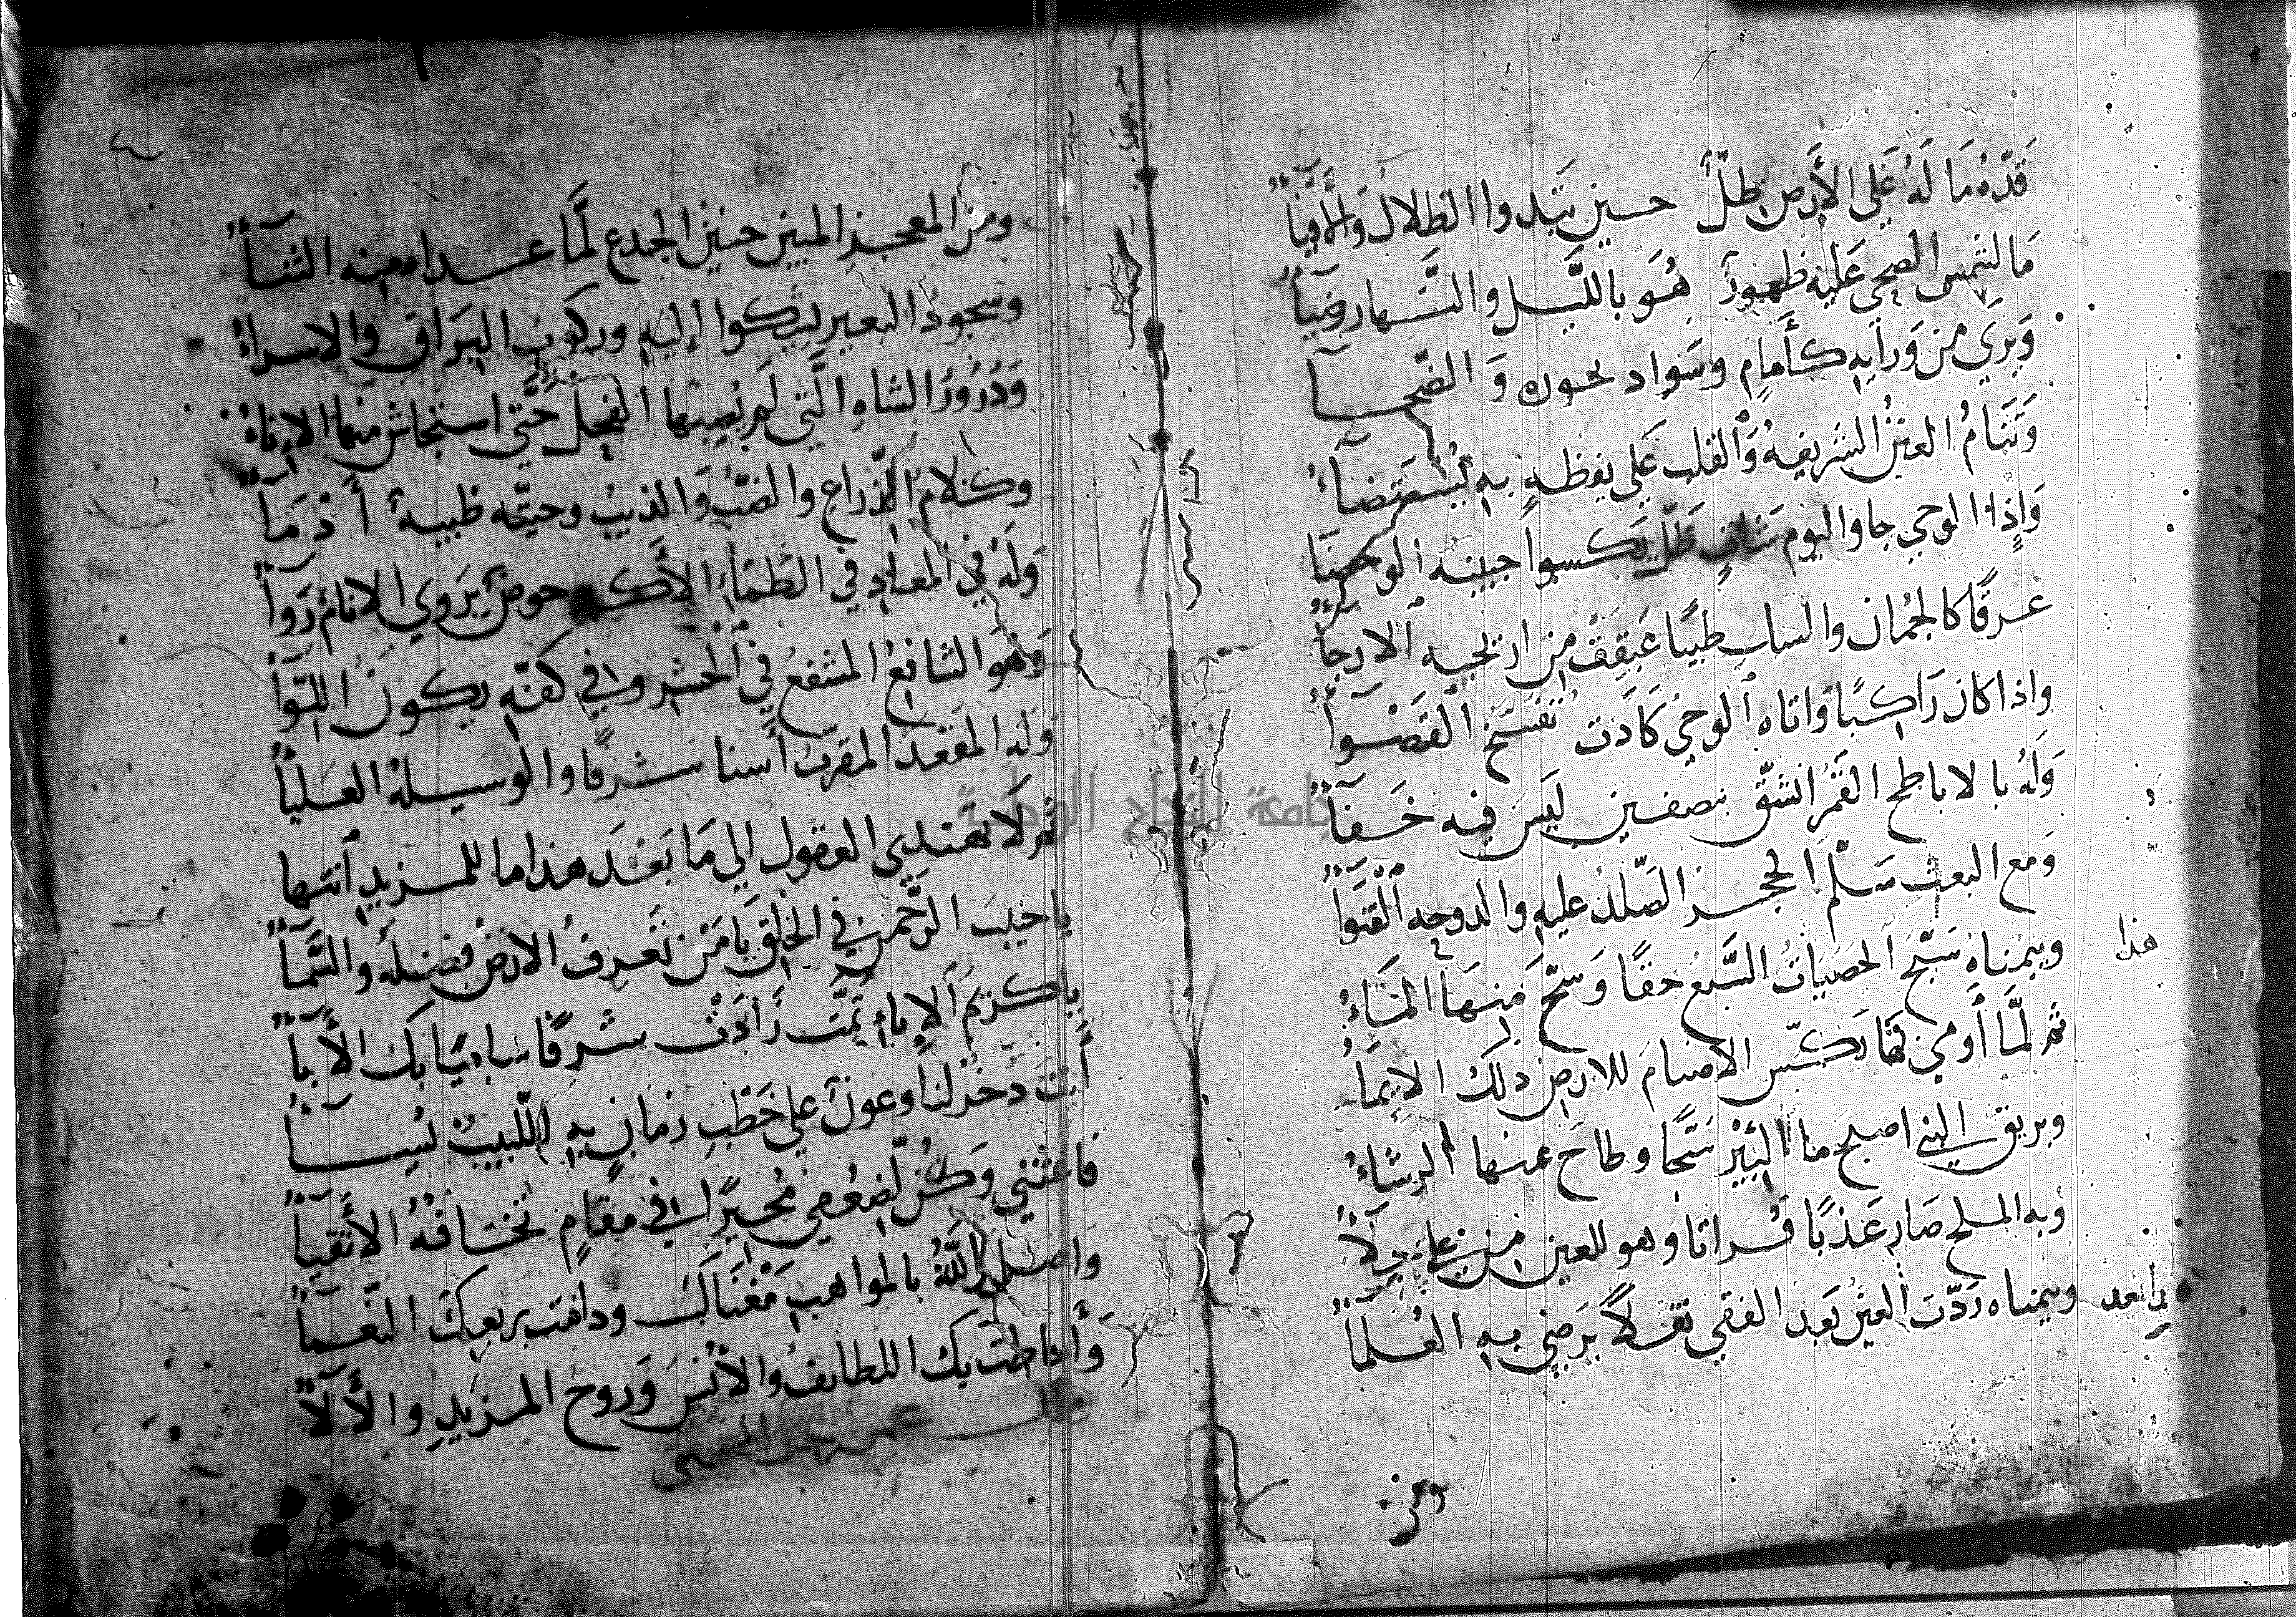 قَدّهُ مَا لَهُ عَلَى الأَرضِ ظِلٌّ حسين تَبدوا الظلالُ وَالأفيَآءُ
مَا لشمسِ الضحى عَليه ظهورٌ هُوَ بالليل والنَّهار ضِيَآءُ
وَيَرى من وَرايهِ كأَمامٍ وسَواد نحوره وَ الضّحآ
وَتَنَامُ العينُ الشريفهُ وَالقلب عَلى يقظهٍ بهِ يُستَضآءُ
وَإِذا الوحي جا واليوم شاتٍ ظَلّ يَكسوا جبينه الرحضا
عَرقًا كالجُمان والساب طيبًا عَبِقَت من اريجيه الارجآءُ
واذا كان رَاكبًا وَاتاه الوحيُ كَادَت تفسّخ القَصْوآءُ
وَلَهُ بالاباطح القَمَرُ انشقّ نصفين لَيسَ فيه خَفَآءٌ
وَمع البعث سَلّم الحجر الصَّلدُ عليهِ والدوحه القنوَآءُ
وبيمناهُ سَبّحَ الحصَيَاتُ السَّبعُ حقًا وَسَحّ مِنهَا المَاءُ
ثم لمَّا أومى لها نكّس الاصنامَ للارض ذلكَ الايمآءُ
وبريق النبي اصلح ما البئِر سَحًّا وطاحَ عنها الرشاءُ
وَبه الملح صَار عَذبًا فُراتا وهو للعين من عمى جلآءٌ
وبيمناه رَدّت العينُ بَعد الفقي تفلاً يَرضى بهِ العُلمَآءُ
هذا
بعد
ومن
ومن المعجز المبين حنينُ الجدع لمَّا عداه منه الثنآءُ
وسجودُ البعير ليشكوا إليهِ وركوبُ البَرَاق والاسراءُ
وَدُرُورُ الشاهِ الَّتي لَم يُصِبها الفحل حَتَّى استجاش منها الاناءُ
وكلام الذّراع والضبّ وَالذيبِ وحيّته ظبيه أدمَآءُ
وَلَهُ في المعادِ في الظمَاءِ الأكبر حوضٌ يَروي الانامَ رَوَآءُ
وَهوَ الشافعُ المشفعُ في الحشر وفي كفّهِ يكونُ اللّوَآءُ
وَلَه المقعَدُ المقرّبُ أسنا شرفًا والوسيلهُ العليَآءُ
ثم لا تهتدي العقول الى مَا بَعدَ هذا ما للمزيدِ انتها
يا حبيبَ الرّحمن في الخلق يَا مَن تَعرفُ الارضُ فضلهُ والسَّمآءُ
يا كريمَ الاباءِ ثمّت زَادَت شرفًا سَاميًا بك الأبآءُ
أنت دُخرٌ لنا وعونٌ على خَطبِ زمانٍ بهِ اللّبيبُ يُسآءُ
فاغثني وَكُن لضعفي مُجيرًا في مقامٍ تخافهُ الأتقيآءُ
واصل اللهُ بالمواهبِ مَغنَاكَ ودامت بربعِكَ النّعمَآءُ
وَأحاطت بكَ اللطايفُ والأُنسُ وَروحُ المزيدِ والألآءُ